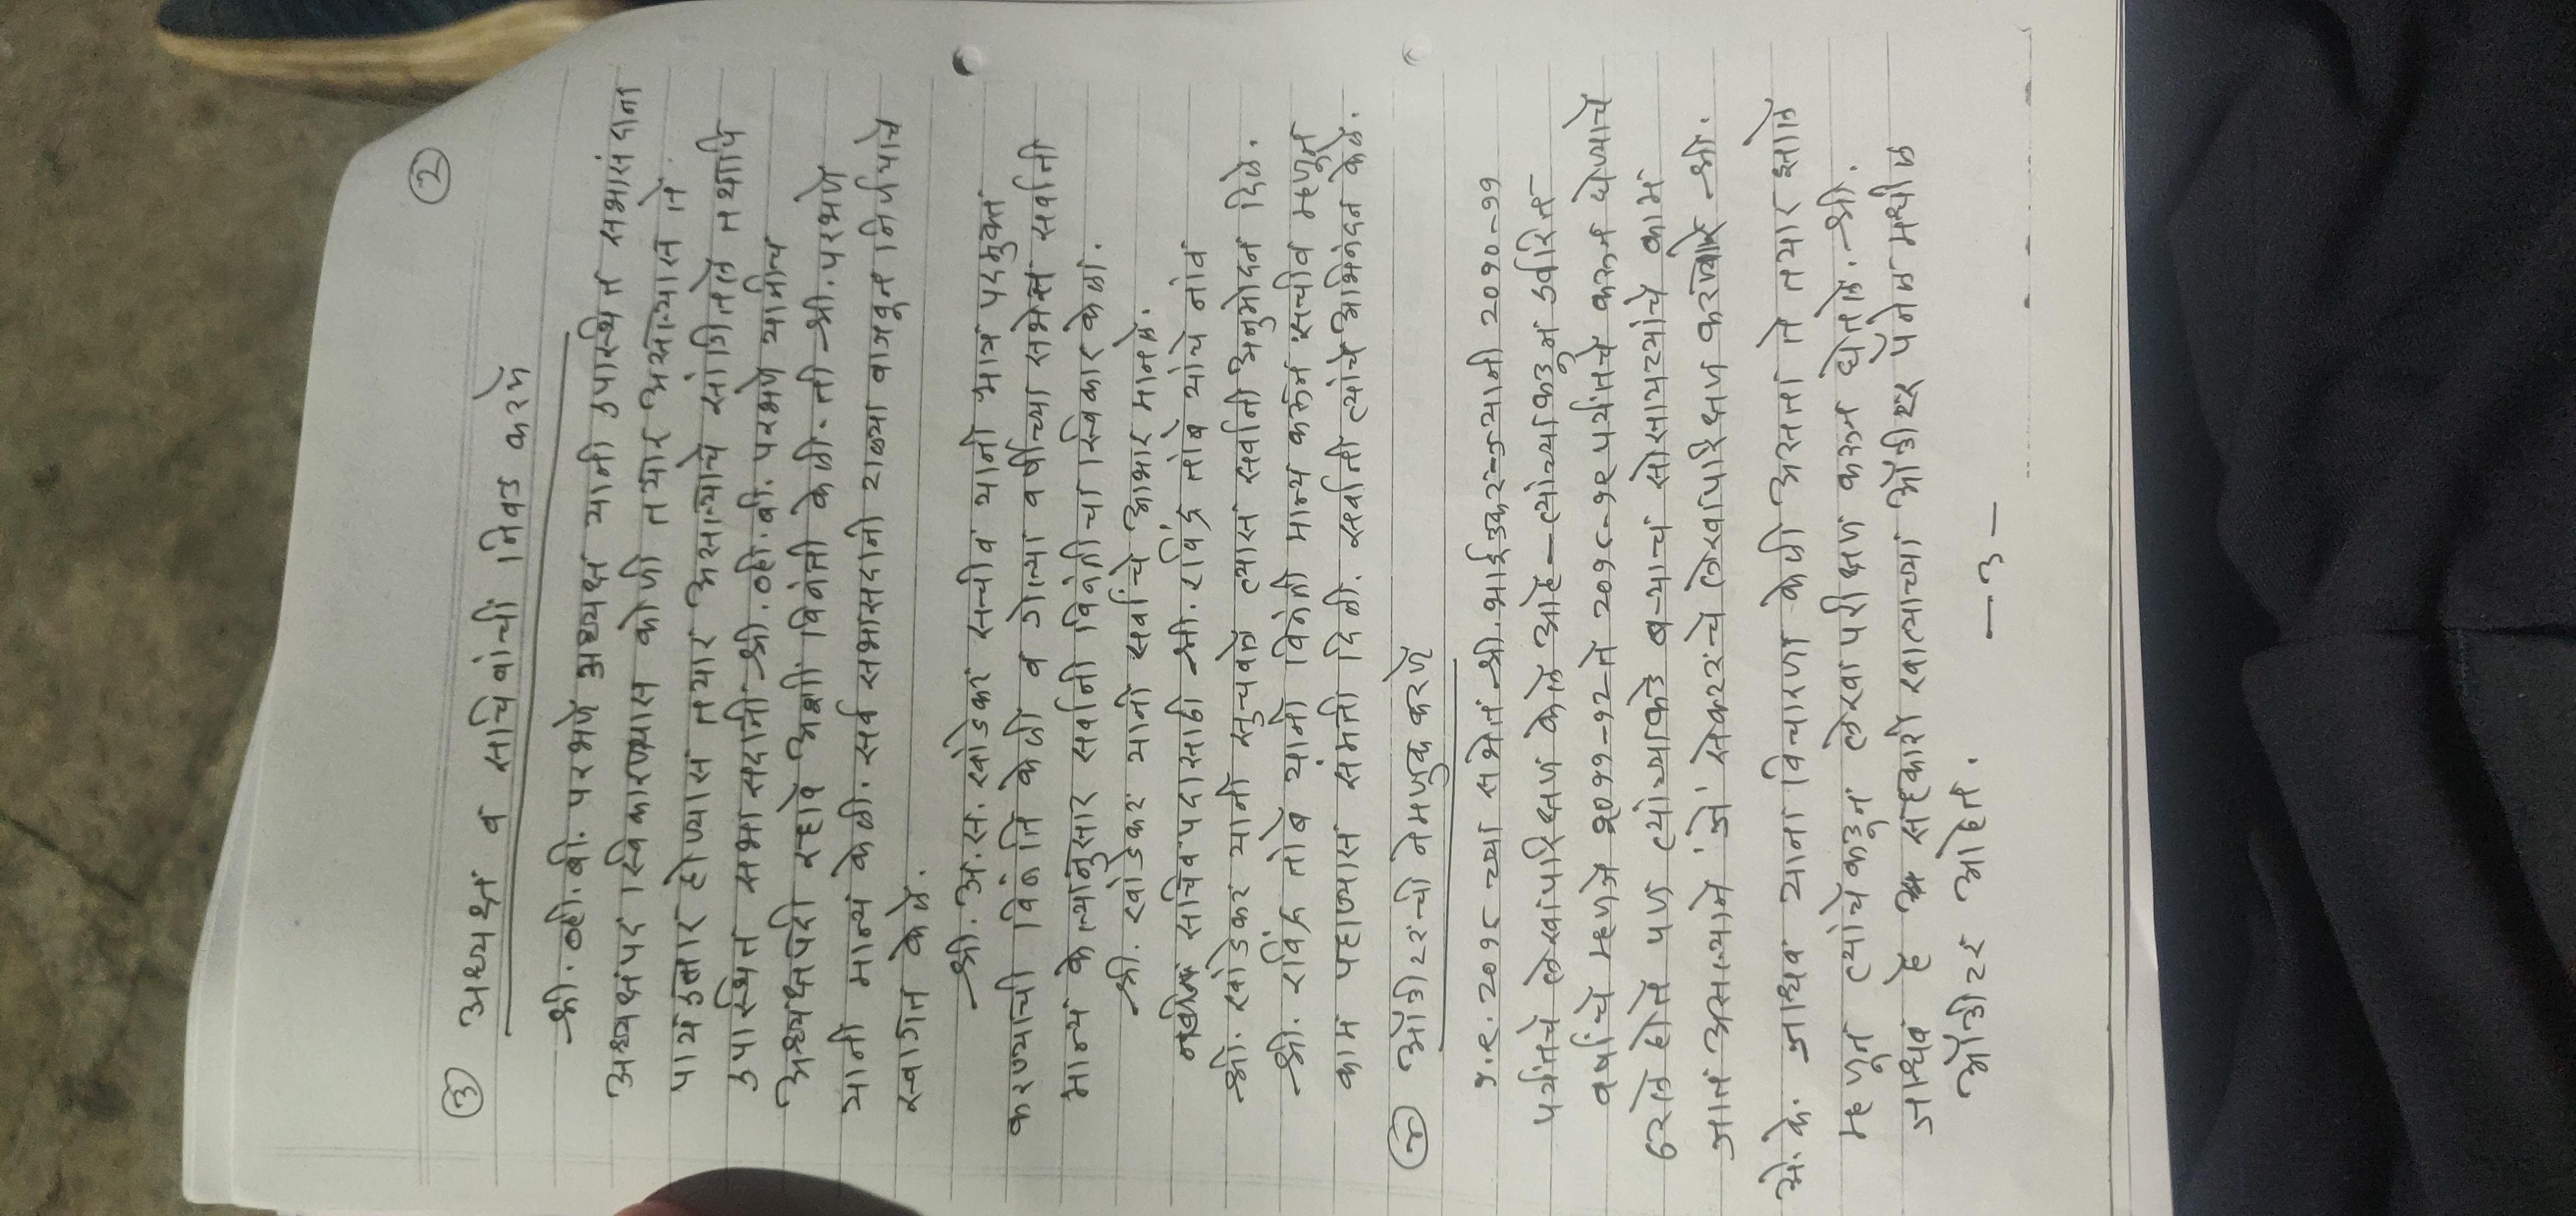 ②
③ अध्यक्ष व सचिवांची निवड करणे
श्री. व्ही. बी. परभणे अध्यक्ष यांनी उपस्थित सभासदांना
अध्यक्षपद स्विकारण्यास कोणी तयार असल्यास ते
पायउतार होण्यास तयार असल्याचे सांगितले तथापि
उपास्थित सभासदांनी श्री. व्ही. बी. परभणे यांनीच
अध्यक्षपदी रहावे अशी विनंती केली. ती श्री. परभणे
यांनी मान्य केली. सर्व सभासदांनी टाळ्या वाजवून निर्णयाचे
स्वागत केले.
श्री. अ. स. खोडकर सचीव यांनी मात्र पदमुक्त
करण्याची विनंति केली व गेल्या वर्षीच्या सभेस सर्वांनी
मान्य केल्यानुसार सर्वांनी विनंतीचा स्विकार केला.
श्री. खोडकर यांनी सर्वांचे आभार मानले.
नवीन सचिव पदासाठी श्री. रविंद्र तांबे यांचे नांव
श्री. खोडकर यांनी सुचवले त्यास सर्वांनी अनुमोदन दिले.
श्री. रविंद्र तांबे यांनी विनंती मान्य करून सचीव म्हणून
काम पहाण्यास संमती दिली. सर्वांनी त्यांचे अभिनंदन केले.
④ ऑडीटरची नेमणुक करणे
३.९.२०१८ च्या सभेत श्री. भाईडकर यांनी २०१०-११
पर्यंतचे लेखापरिक्षण केले आहे - त्यांच्याकडून उर्वरित
वर्षांचे म्हणजे २०११-१२ ते २०१८-१९ पर्यंतचे करून घेण्याचे
ठरले होते पण त्यांच्याकडे बऱ्याच सोसायट्यांचे काम
आलं असल्याने जे सेक्टरचे लेखापरिक्षण करणारे श्री.
यो. के. जाधव यांना विचारणा केली असता ते तयार झाले
म्हणून त्यांचेकडून लेखापरीक्षण करून घेतले. श्री.
जाधव हे सहकारी खात्याच्या ऑडीटर पॅनेल मधील
ऑडीटर आहेत.
— ३ —